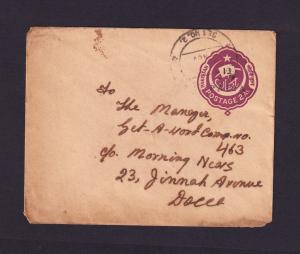 POSTAGE 2 AS
To
The Manager,
Get-A-Word Comp. no.
463
c/o Morning News
23, Jinnah Avenue
Dacca